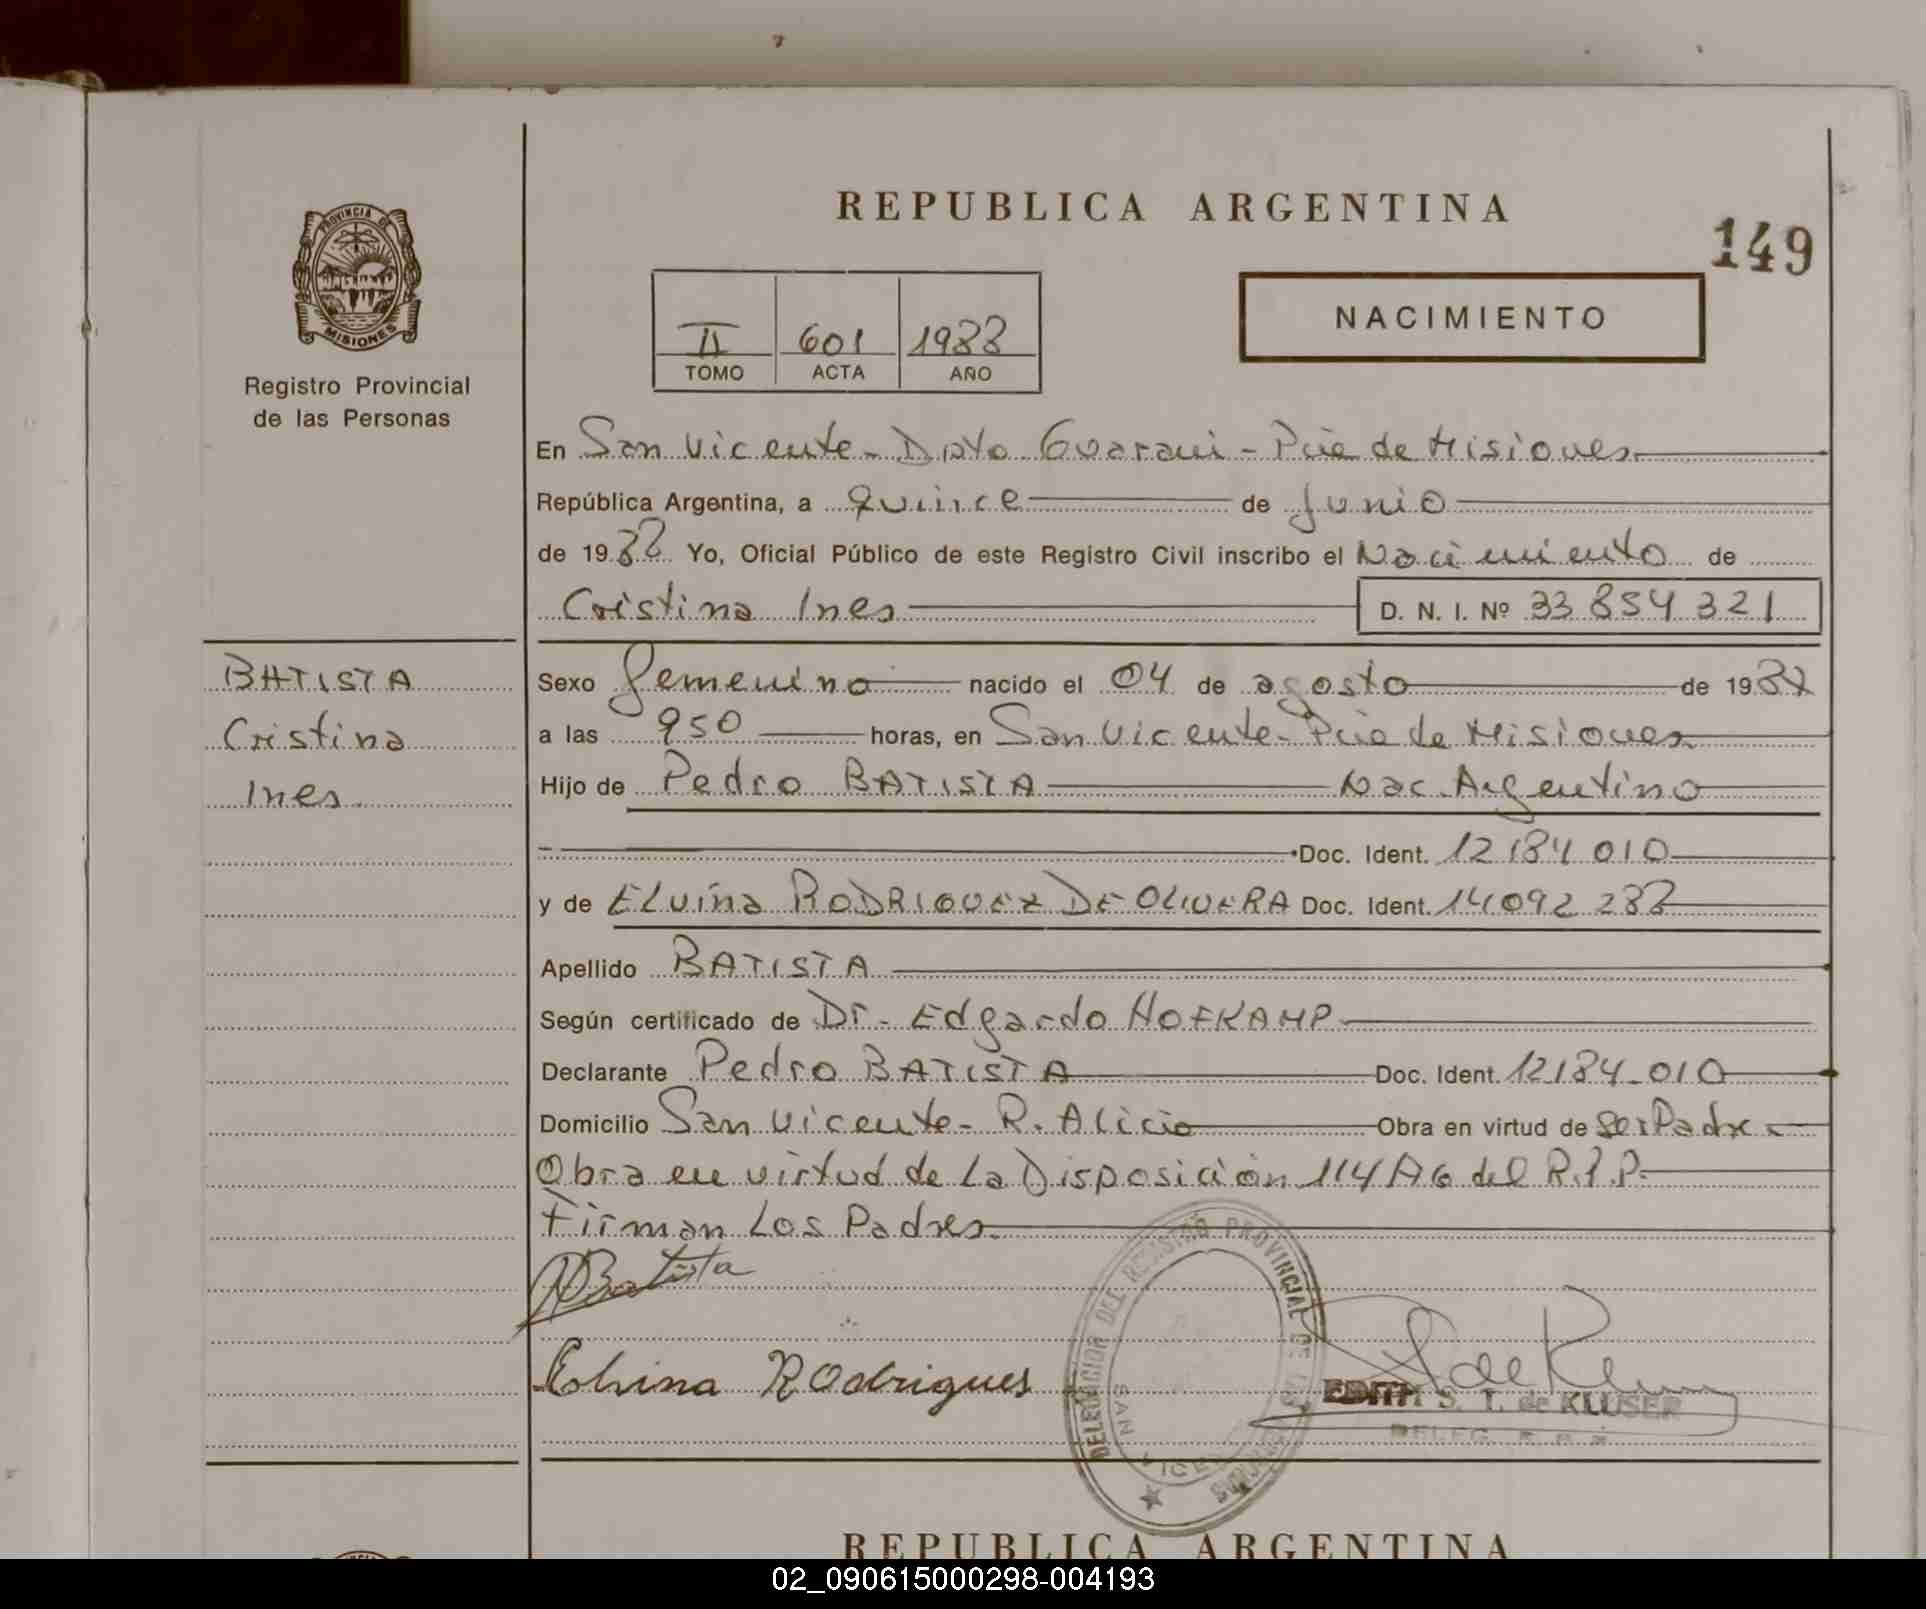 REPUBLICA ARGENTINA
149
PROVINCIA DE MISIONES
Registro Provincial
de las Personas
II 601 1988
TOMO ACTA AÑO
NACIMIENTO
En San Vicente - Dpto Guarani - Pcia de Misiones
República Argentina, a quince de Junio
de 1988 Yo, Oficial Público de este Registro Civil inscribo el Nacimiento de
Cristina Ines D. N. I. Nº 33 854 321
BATISTA
Cristina
Ines.
Sexo femenino nacido el 04 de agosto de 1987
a las 950 horas, en San Vicente - Pcia de Misiones
Hijo de Pedro BATISTA Nac. Argentino
Doc. Ident. 12 184 010
y de ELvina RODRIGUEZ DE OLIVERA Doc. Ident. 14092 288
Apellido BATISTA
Según certificado de Dr. Edgardo HOFKAMP
Declarante Pedro BATISTA Doc. Ident. 12184.010
Domicilio San Vicente - R. Alicia Obra en virtud de ser Padre
Obra en virtud de La Disposición 114/86 del R.P.P.
Firman Los Padres.
Batista
Elvina Rodrigues
DELEGACION DEL REGISTRO PROVINCIAL DE LAS PERSONAS
SAN VICENTE
EDITH S. T. de KLUSER
DELEG. R. P. P.
REPUBLICA ARGENTINA
02_090615000298-004193